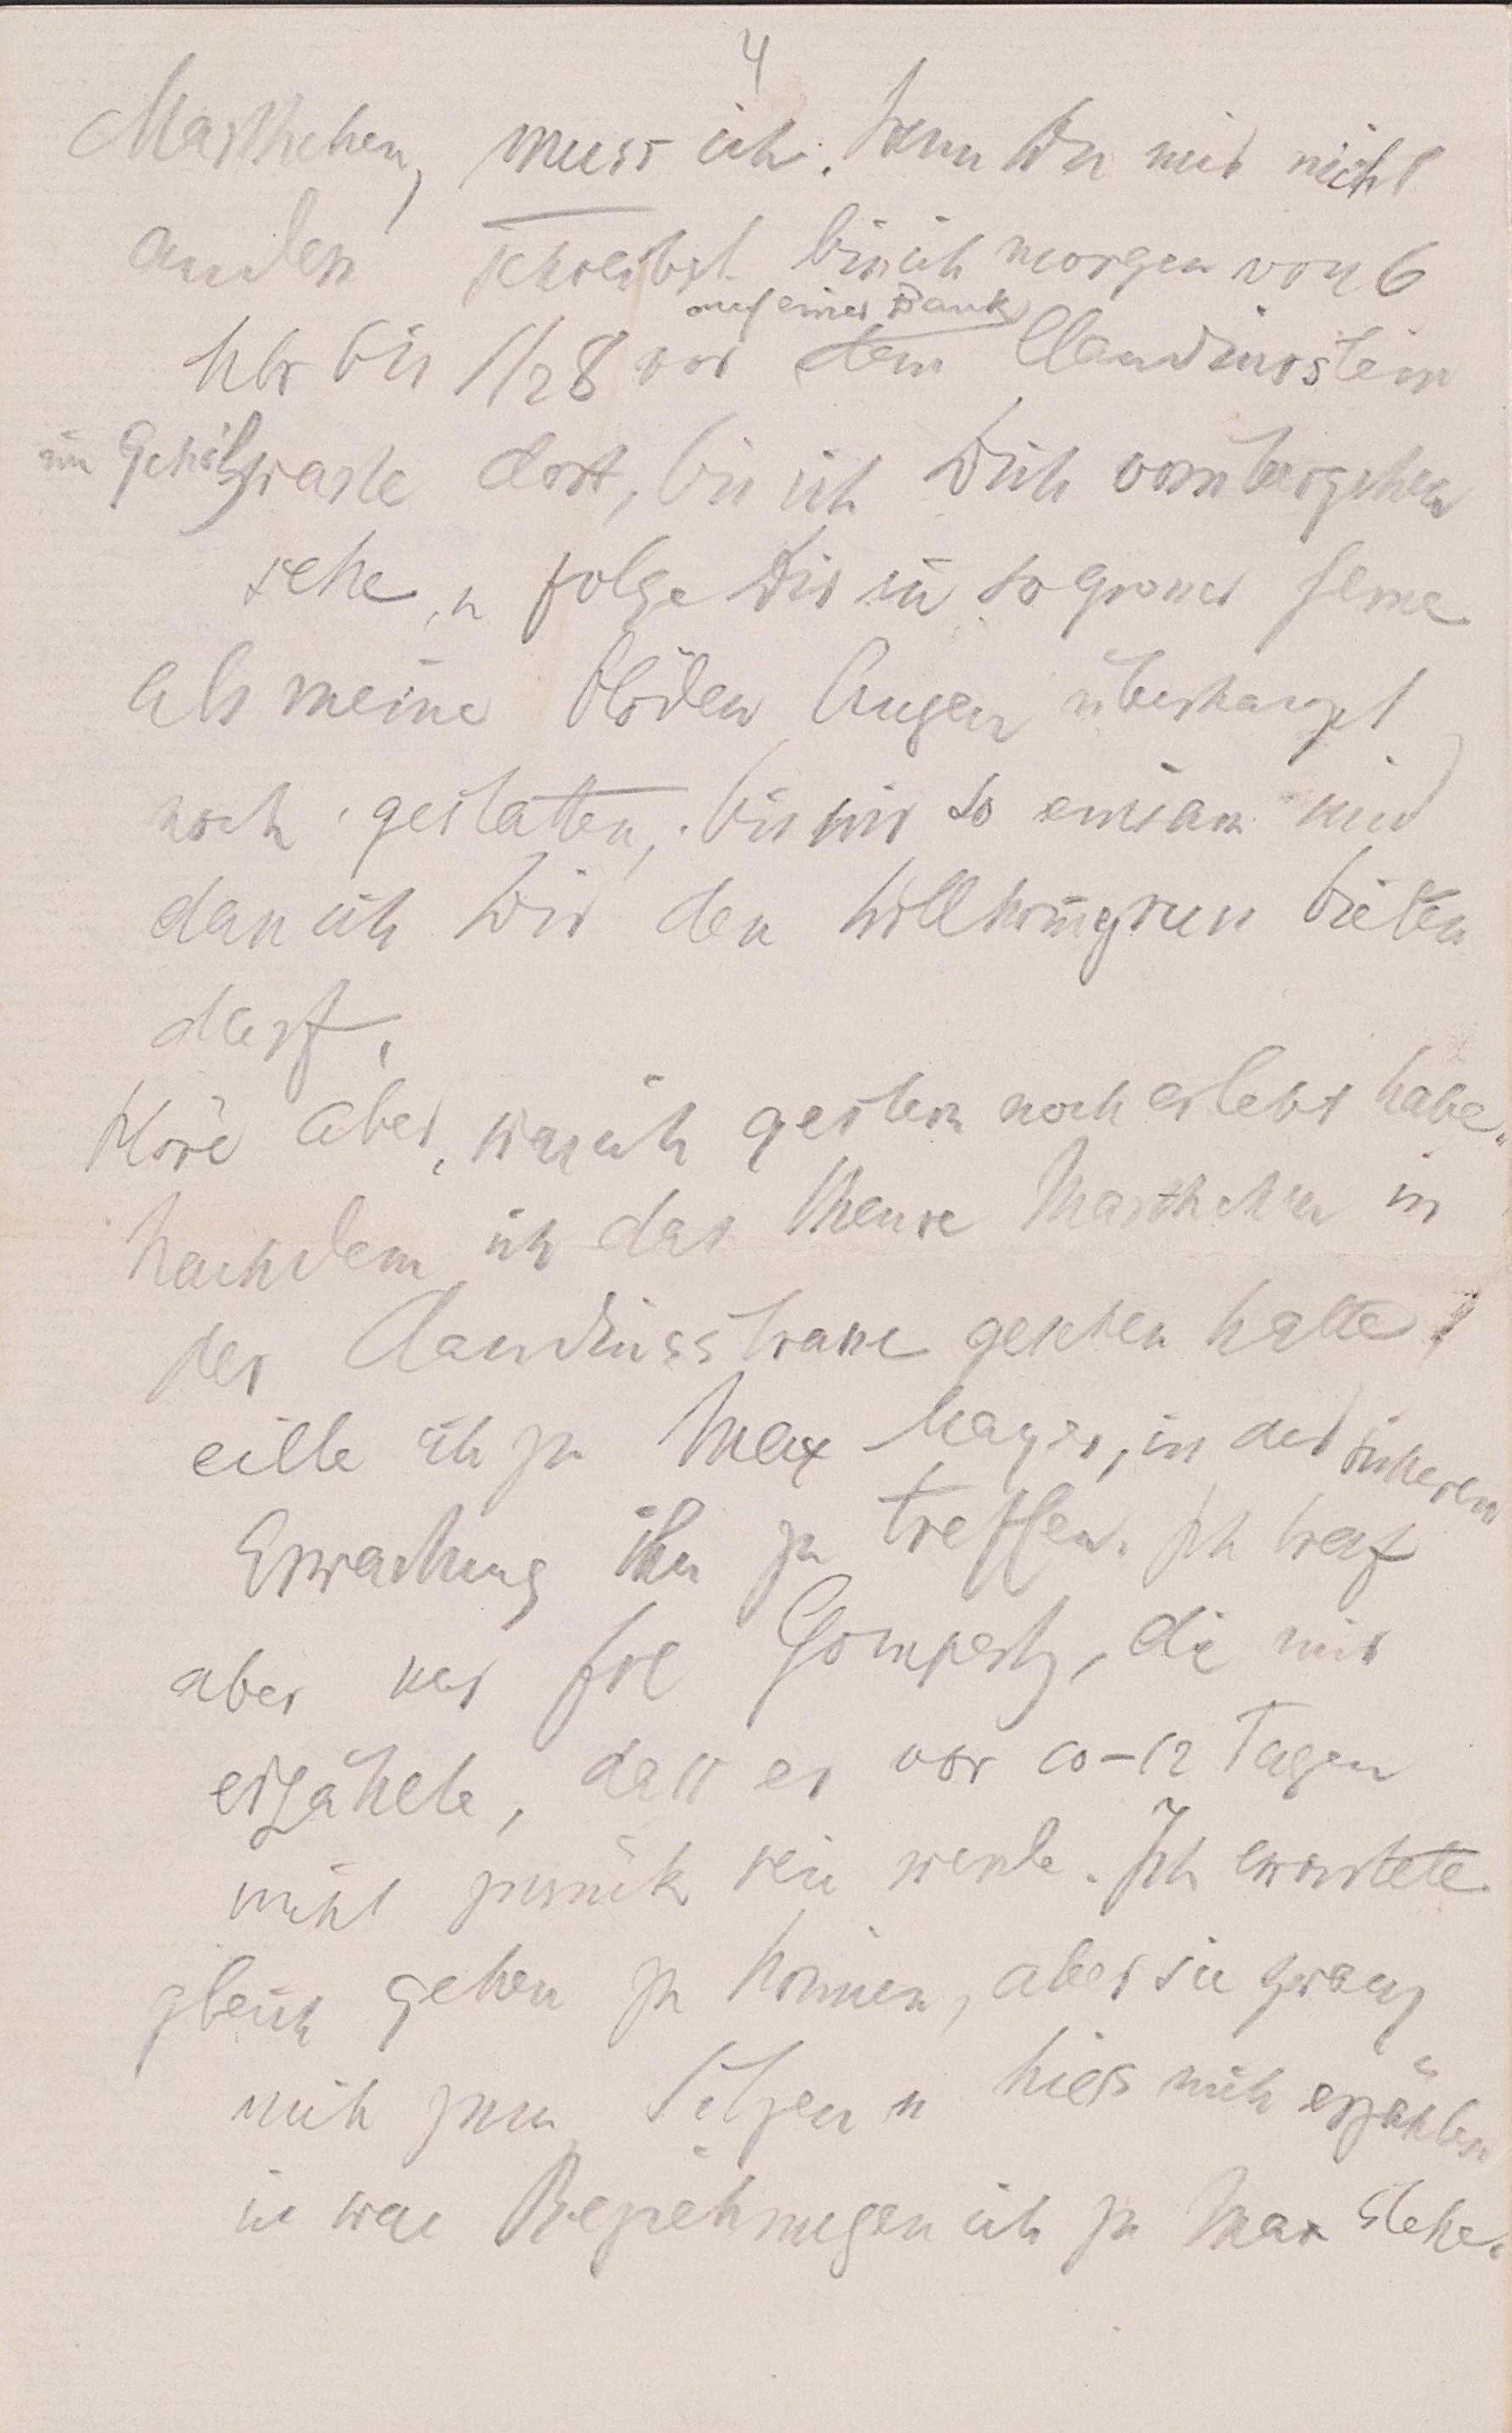 4
Marthchen, muss ich. Wenn Du mir nicht
anders schreibst bin ich morgen von 6
auf einer Bank
Uhr bis 1/28 vor dem Claudiusstein
im Gehölz warte dort, bis ich Dich vorübergehen
sehe, u folge Dir in so grosser Ferne
als meine blöden Augen überhaupt
noch gestatten, bis wir so einsam sind
dass ich Dir den Willkomgruss bieten
darf.
Höre aber, was ich gestern noch erlebt habe.
Nachdem ich das theure Marthchen in
der Claudiusstrasse gesehen hatte,
eilte ich zu Max Mayer, in der sicheren
Erwartung ihn zu treffen. Ich traf
aber nur Frl Gompertz, die mir
erzählte, dass er vor 10-12 Tagen
nicht zurück sein werde. Ich erwartete
gleich gehen zu können, aber sie zwang
mich zum Sitzen u hiess mich erzählen
in was Beziehungen ich zu Max stehe.